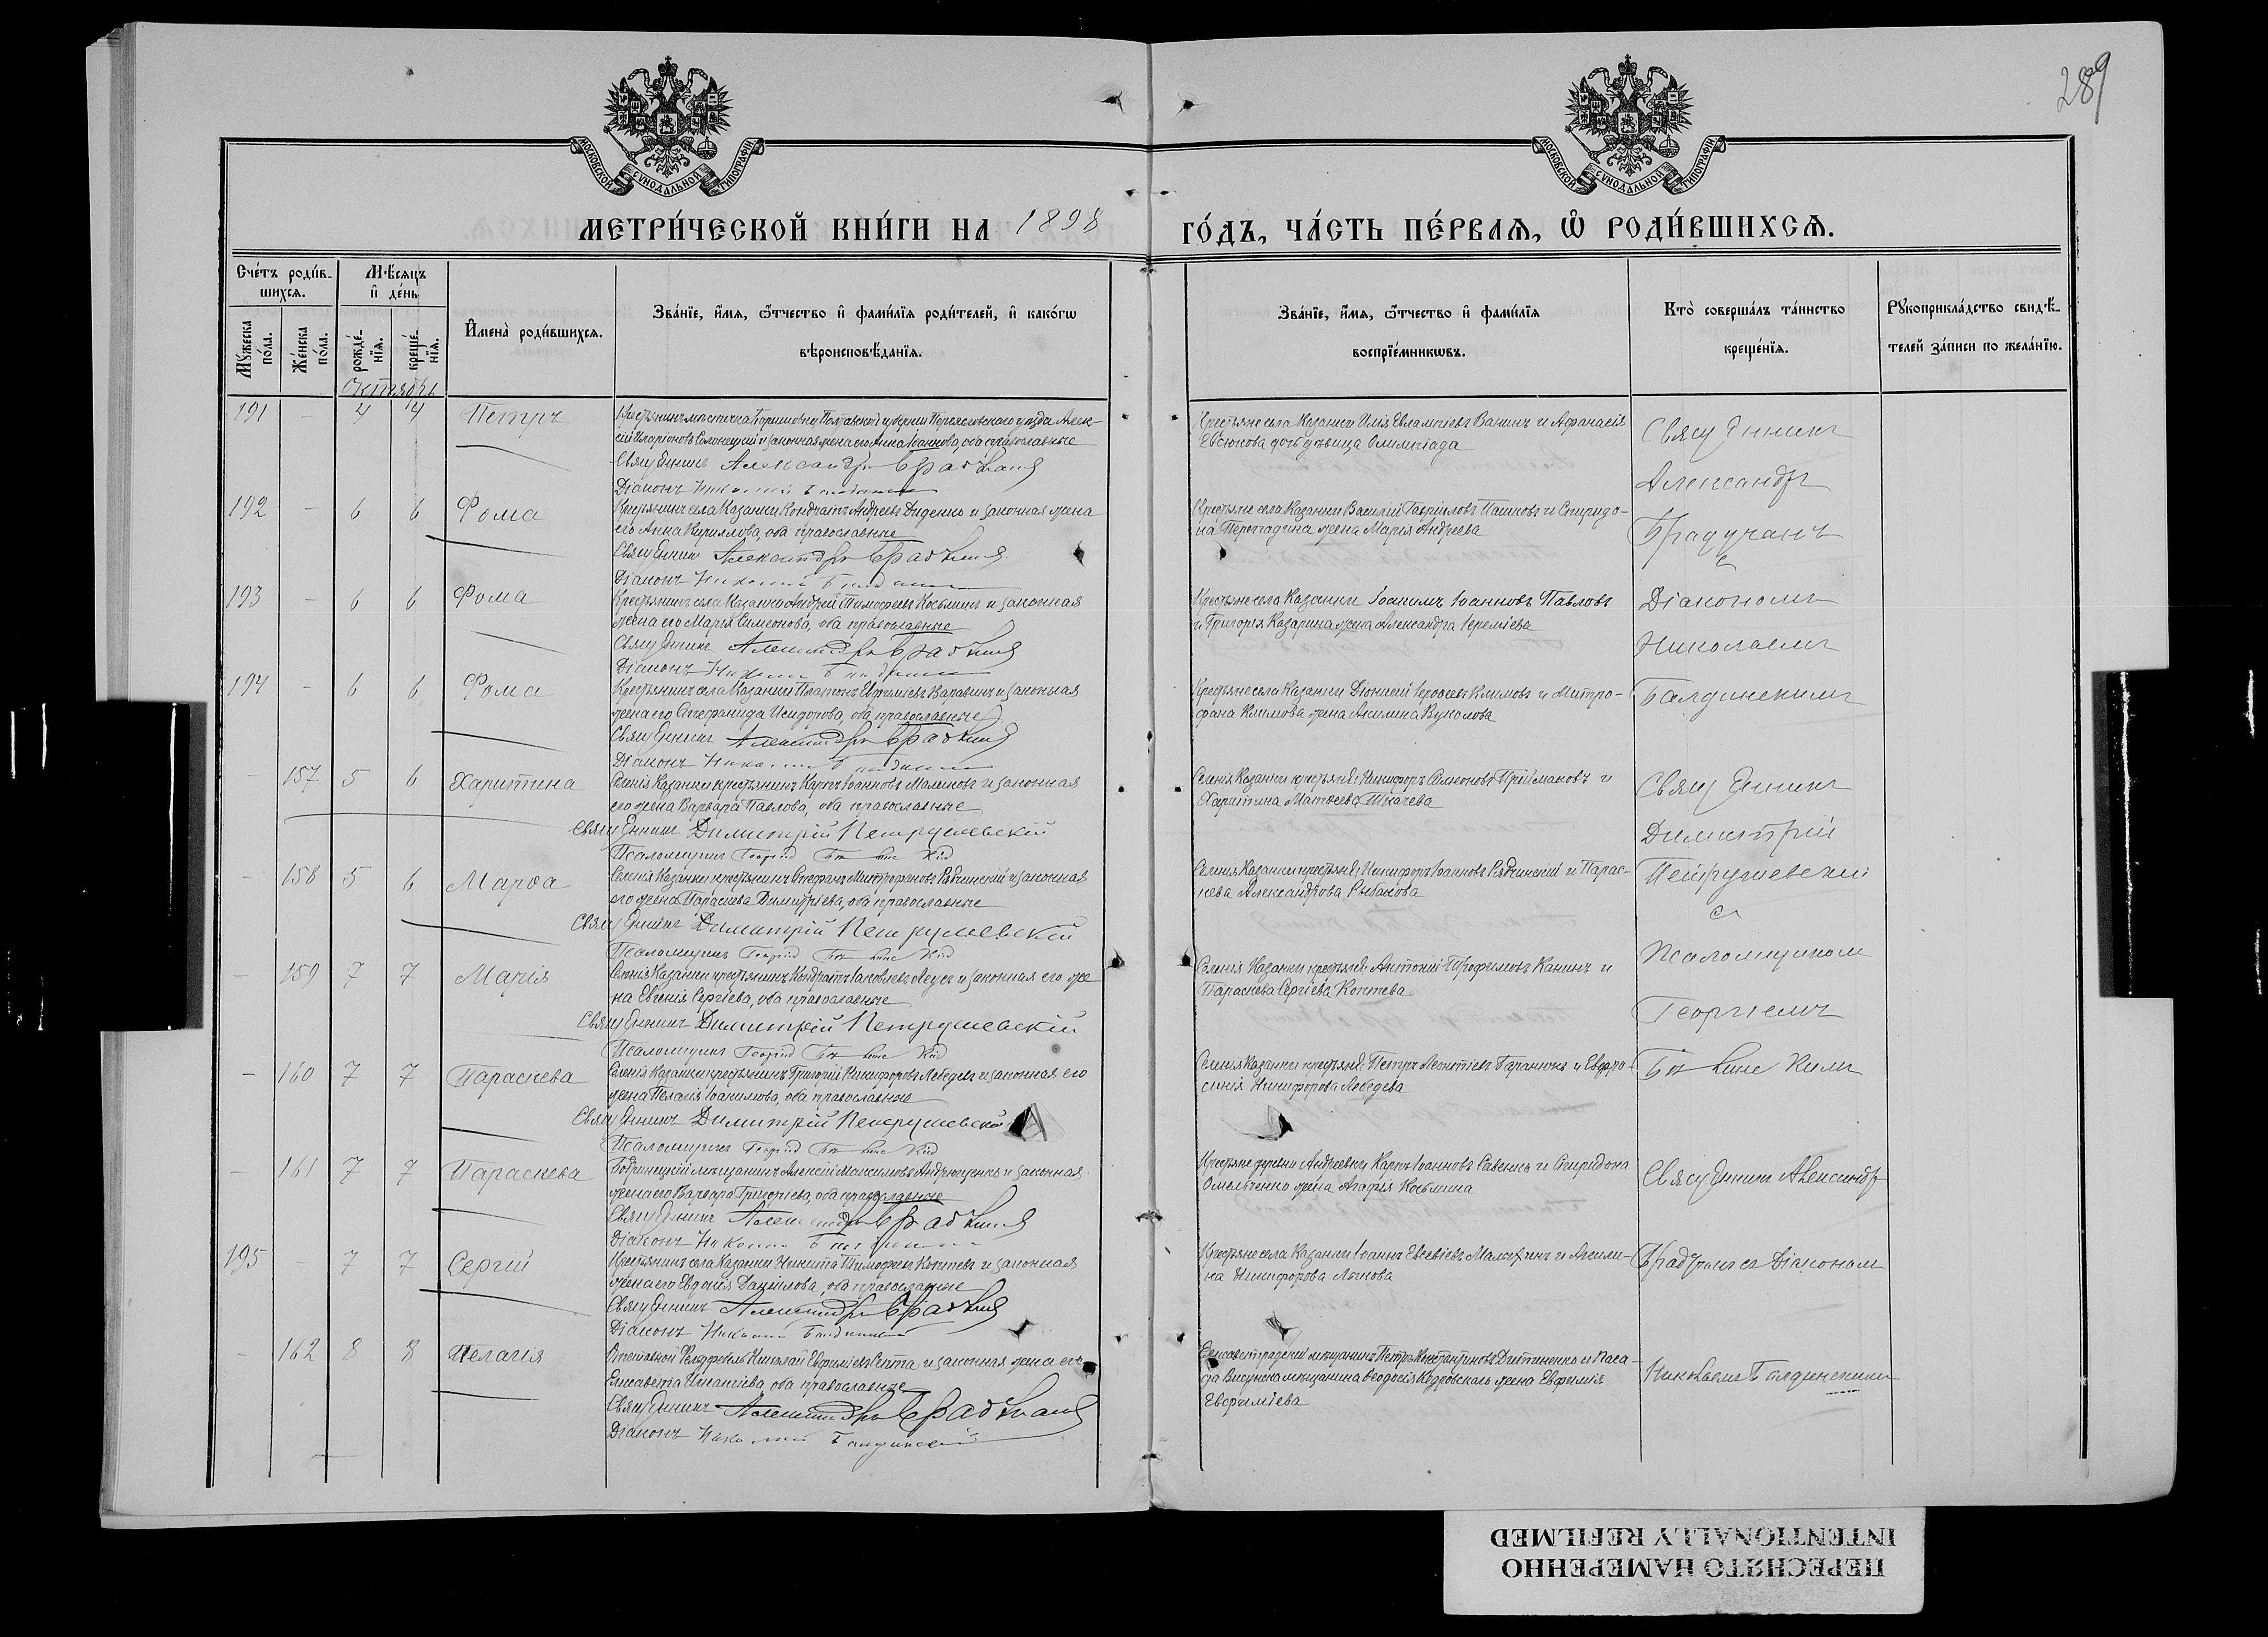 289
МОСКОВСКОЙ СУНОДАЛЬНОЙ ТИПОГРАФІИ
МОСКОВСКОЙ СУНОДАЛЬНОЙ ТИПОГРАФІИ
МЕТРИ́ЧЕСКОЙ КНИ́ГИ НА 1898
ГО́ДЪ, ЧА́СТЬ ПЕ́РВАѦ, Ѡ РОДИ́ВШИХСѦ.
Сче́тъ роди́в-
шихсѧ.
Мѣ́сяцъ
и҆ де́нь
Мꙋ́жеска по́ла.
Же́нска по́ла.
рожде́-нїѧ.
креще́-нїѧ.
И҆мена̀ роди́вшихсѧ.
Зва́нїе, и҆́мѧ, ѻ҆́тчество и҆ фами́лїѧ роди́телей, и҆ како́гѡ
вѣроисповѣ́данїѧ.
Зва́нїе, и҆́мѧ, ѻ҆́тчество и҆ фами́лїѧ
воспрїе́мникѡвъ.
Кто̀ соверша́лъ та́инство
креще́нїѧ.
Рꙋкоприкла́дство свидѣ́-
телей за́писи по жела́нїю.
Октябрь
191 - 4 4 Петръ
Крестьянинъ мѣстечка Полтавской губерніи Переяславскаго уѣзда Алек-
сій Иларіоновъ и законная жена его Анна Іоаннова, оба православные
Священникъ Александръ Брадучанъ
Діаконъ Николай
Крестьяне села Казанки Илія Евлампіевъ Ванинъ и Аѳанасія
Евсюкова дочь дѣвица Олимпіада
Священникъ
Александръ
192 - 6 6 Фома
Крестьянинъ села Казанки Кондратъ Андреевъ Диденко и законная жена
его Анна Кириллова, оба православные
Священникъ Александръ Брадучанъ
Діаконъ Николай
Крестьяне села Казанки Василій Гавріиловъ Пашковъ и Спиридо-
на жена Марія Андреева
Брадучанъ
съ
193 - 6 6 Фома
Крестьянинъ села Казанки Андрей Тимофеевъ Козьминъ и законная
жена его Марія Симеонова, оба православные
Священникъ Александръ Брадучанъ
Діаконъ Николай
Крестьяне села Казанки Іоакимъ Іоанновъ Павловъ
и Григорія Казарина жена Александра Іереміева
Діакономъ
Николаемъ
194 - 6 6 Фома
Крестьянинъ села Казанки Платонъ Варавинъ и законная
жена его Стефанида Исидорова, оба православные
Священникъ Александръ Брадучанъ
Діаконъ Николай
Крестьяне села Казанки Діонисій Климовъ и Митро-
фана Климова жена Акилина Вуколова
Балдинскимъ
- 157 5 6 Харитина
Селенія Казанки крестьянинъ Карпъ Іоанновъ Малиновъ и законная
его жена Варвара Павлова, оба православные
Священникъ Димитрій Петрушевскій
Псаломщикъ Георгій
Селенія Казанки крестьяне: Никифоръ Симеоновъ Приймаковъ и
Харитина Матѳеева Ткачева
Священникъ
Димитрій
- 158 5 6 Марѳа
Селенія Казанки крестьянинъ Стефанъ Митрофановъ Рябчинскій и законная
его жена Параскева Димитріева, оба православные
Священникъ Димитрій Петрушевскій
Псаломщикъ Георгій
Селенія Казанки крестьяне: Никифоръ Іоанновъ Рябчинскій и Парас-
кева Александрова Рыбакова
Петрушевскій
съ
- 159 7 7 Марія
Селенія Казанки крестьянинъ Кондратъ Іаковлевъ и законная его же-
на Евгенія Сергіева, оба православные
Священникъ Димитрій Петрушевскій
Псаломщикъ Георгій
Селенія Казанки крестьяне: Антоній Трофимовъ Канинъ и
Параскева Сергіева Коптева
Псаломщикомъ
Георгіемъ
- 160 7 7 Параскева
Селенія Казанки крестьянинъ Григорій Никифоровъ Лебедевъ и законная его
жена Пелагія Іоакимова, оба православные
Священникъ Димитрій Петрушевскій
Псаломщикъ Георгій
Селенія Казанки крестьяне: Петръ Леонтіевъ Баранюкъ и Евфро-
синія Никифорова Лебедева
- 161 7 7 Параскева
Бобринецкій мѣщанинъ Алексій Максимовъ Андрющенко и законная
жена его Варвара Григоріева, оба православные
Священникъ Александръ Брадучанъ
Діаконъ Николай
Крестьяне деревни Андреевки Карпъ Іоанновъ Савенко и Спиридона
Омельченко жена Агафія Козьмина
Священникъ Александръ
195 - 7 7 Сергій
Крестьянинъ села Казанки Никита Тимофеевъ Коптевъ и законная
жена его Евдокія Даніилова, оба православные
Священникъ Александръ Брадучанъ
Діаконъ Николай
Крестьяне села Казанки Іоаннъ Евсевіевъ Малютинъ и Акили-
на Никифорова Лыкова
Брадучанъ съ Діакономъ
- 162 8 8 Пелагія
Отставной Фельдфебель Николай Евфиміевъ и законная жена его
Елисавета Игнатіева, оба православные
Священникъ Александръ Брадучанъ
Діаконъ Николай Балдинскій
Елисаветградскій мѣщанинъ Петръ Константиновъ и
мѣщанина Ѳеодосія жена Евфимія
Евфиміева
Николаемъ Балдинскимъ
ПЕРЕСНЯТО НАМЕРЕННО
INTENTIONALLY REFILMED